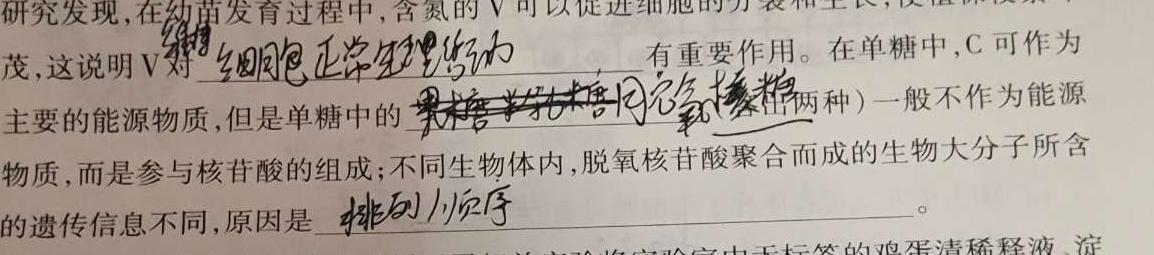 研究发现,在幼苗发育过程中,含氮的V可以促进细胞的分裂和生长,使植株枝繁叶
维持
茂,这说明V对 细胞正常生理活动 有重要作用。在单糖中,C可作为
主要的能源物质,但是单糖中的 脱氧核糖(答出两种)一般不作为能源
物质,而是参与核苷酸的组成;不同生物体内,脱氧核苷酸聚合而成的生物大分子所含
的遗传信息不同,原因是 排列顺序 。
鸡蛋清稀释液、淀